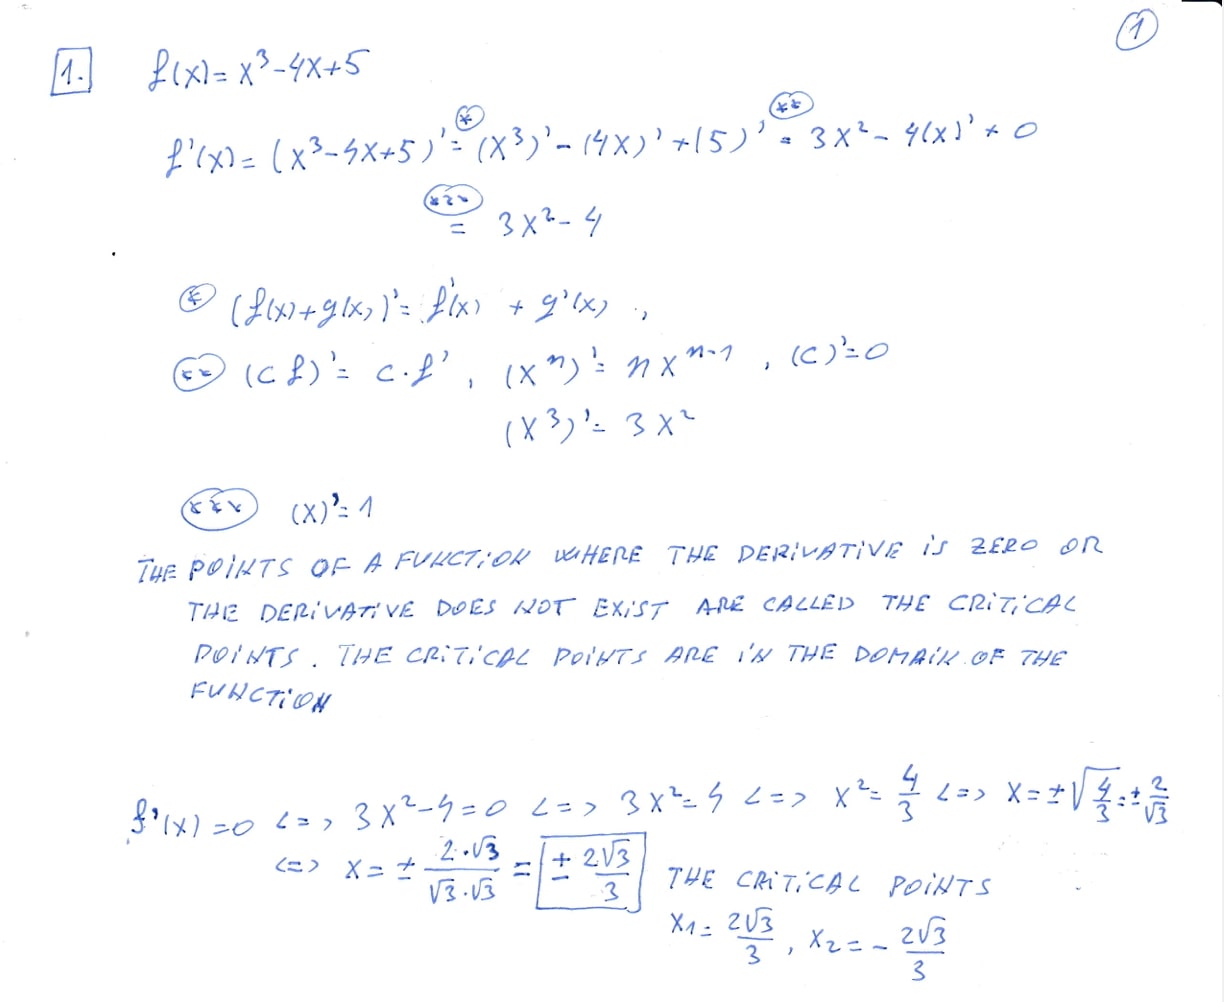 ①
1. f(x)= x³-4x+5
f'(x)= (x³-4x+5)' =(*) (x³)'-(4x)'+(5)' =(**) 3x²-4(x)'+0
(***) = 3x²-4
(*) (f(x)+g(x))'= f'(x) + g'(x),
(**) (cf)'= c·f', (xⁿ)'= nxⁿ⁻¹, (c)'=0
(x³)'= 3x²
(***) (x)'=1
THE POINTS OF A FUNCTION WHERE THE DERIVATIVE IS ZERO OR
THE DERIVATIVE DOES NOT EXIST ARE CALLED THE CRITICAL
POINTS. THE CRITICAL POINTS ARE IN THE DOMAIN OF THE
FUNCTION
f'(x)=0 <=> 3x²-4=0 <=> 3x²=4 <=> x²=4/3 <=> x=±√(4/3)=±2/√3
<=> x=± 2·√3/√3·√3 = ± 2√3/3 THE CRITICAL POINTS
x₁= 2√3/3, x₂=- 2√3/3